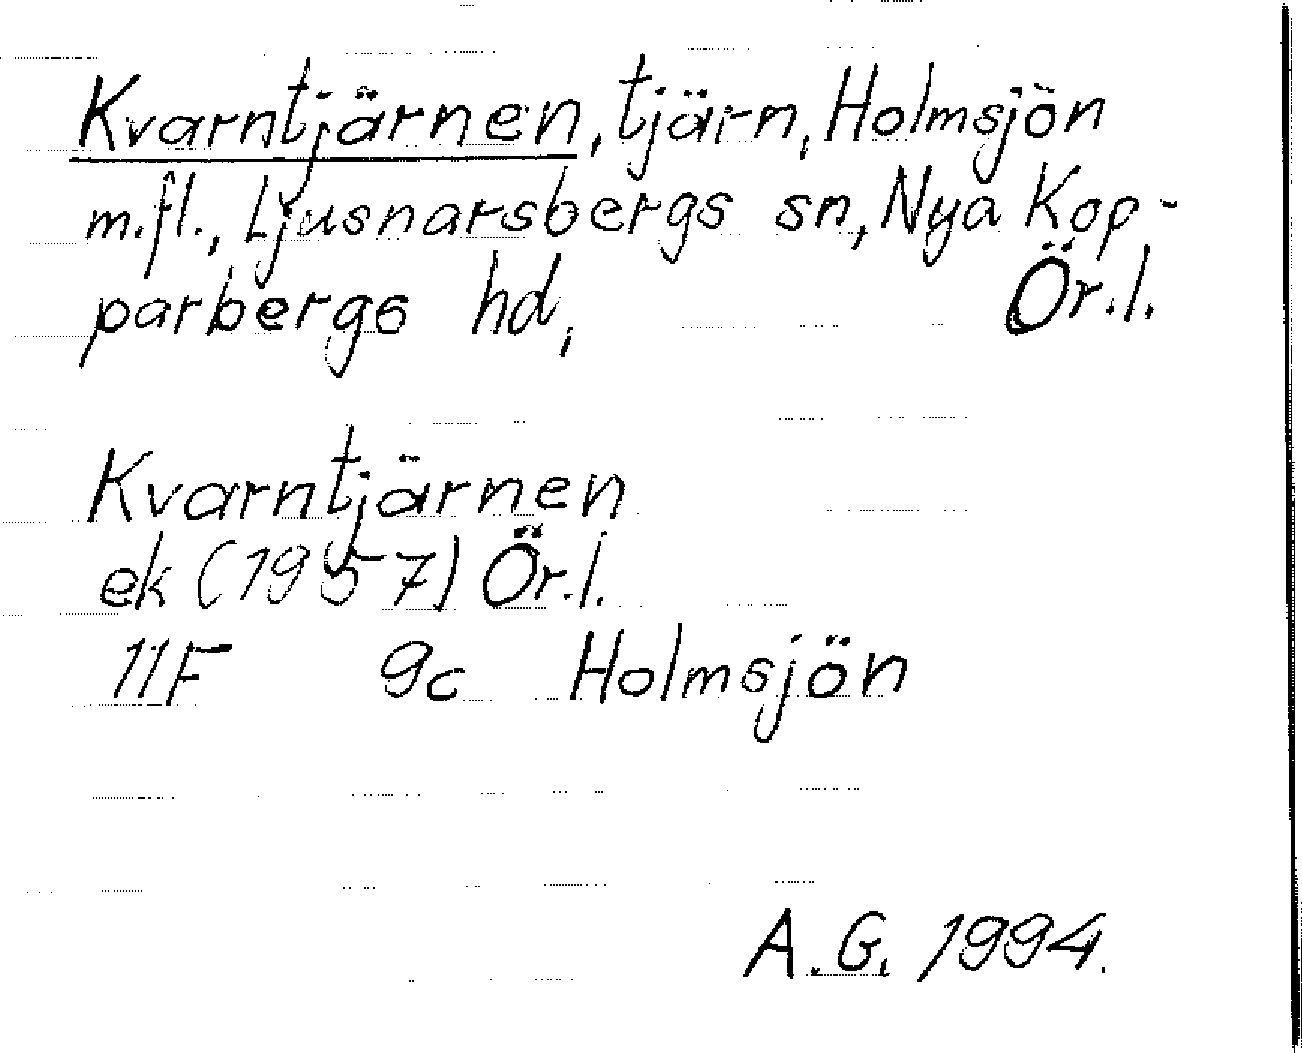 Kvarntjärnen, tjärn, Holmsjön
m.fl., Ljusnarsbergs sn, Nya Kop-
parbergs hd, Ör.l.
Kvarntjärnen
ek (1957) Ör.l.
11F 9c Holmsjön
A.G. 1994.